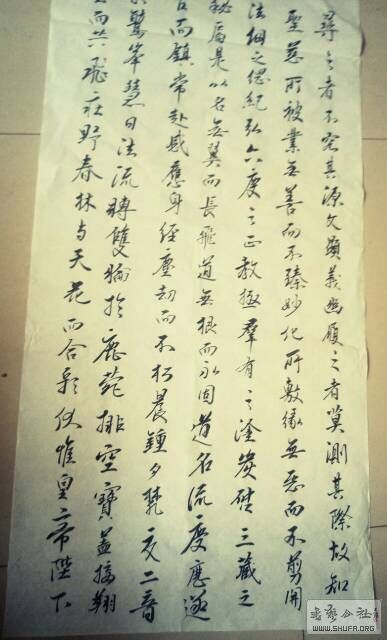 尋之者不究其源文顯義幽履之者莫測其際故知
聖慈所被業無善而不臻妙化所敷緣無惡而不剪開
法網之綱紀弘六度之正教拯羣有之塗炭啓三藏之
秘扃是以名無翼而長飛道無根而永固道名流慶歷遂
古而鎮常赴感應身經塵劫而不朽晨鍾夕梵交二音
於鷲峯慧日法流轉雙輪於鹿菀排空寶蓋接翔
雲而共飛莊野春林与天花而合彩伏惟皇帝陛下
WWW.SHUFA.ORG